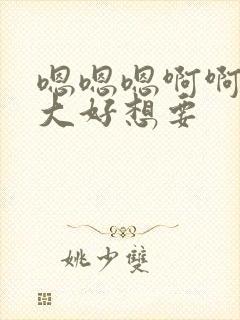 嗯嗯嗯啊啊
大好想要
姚少雙